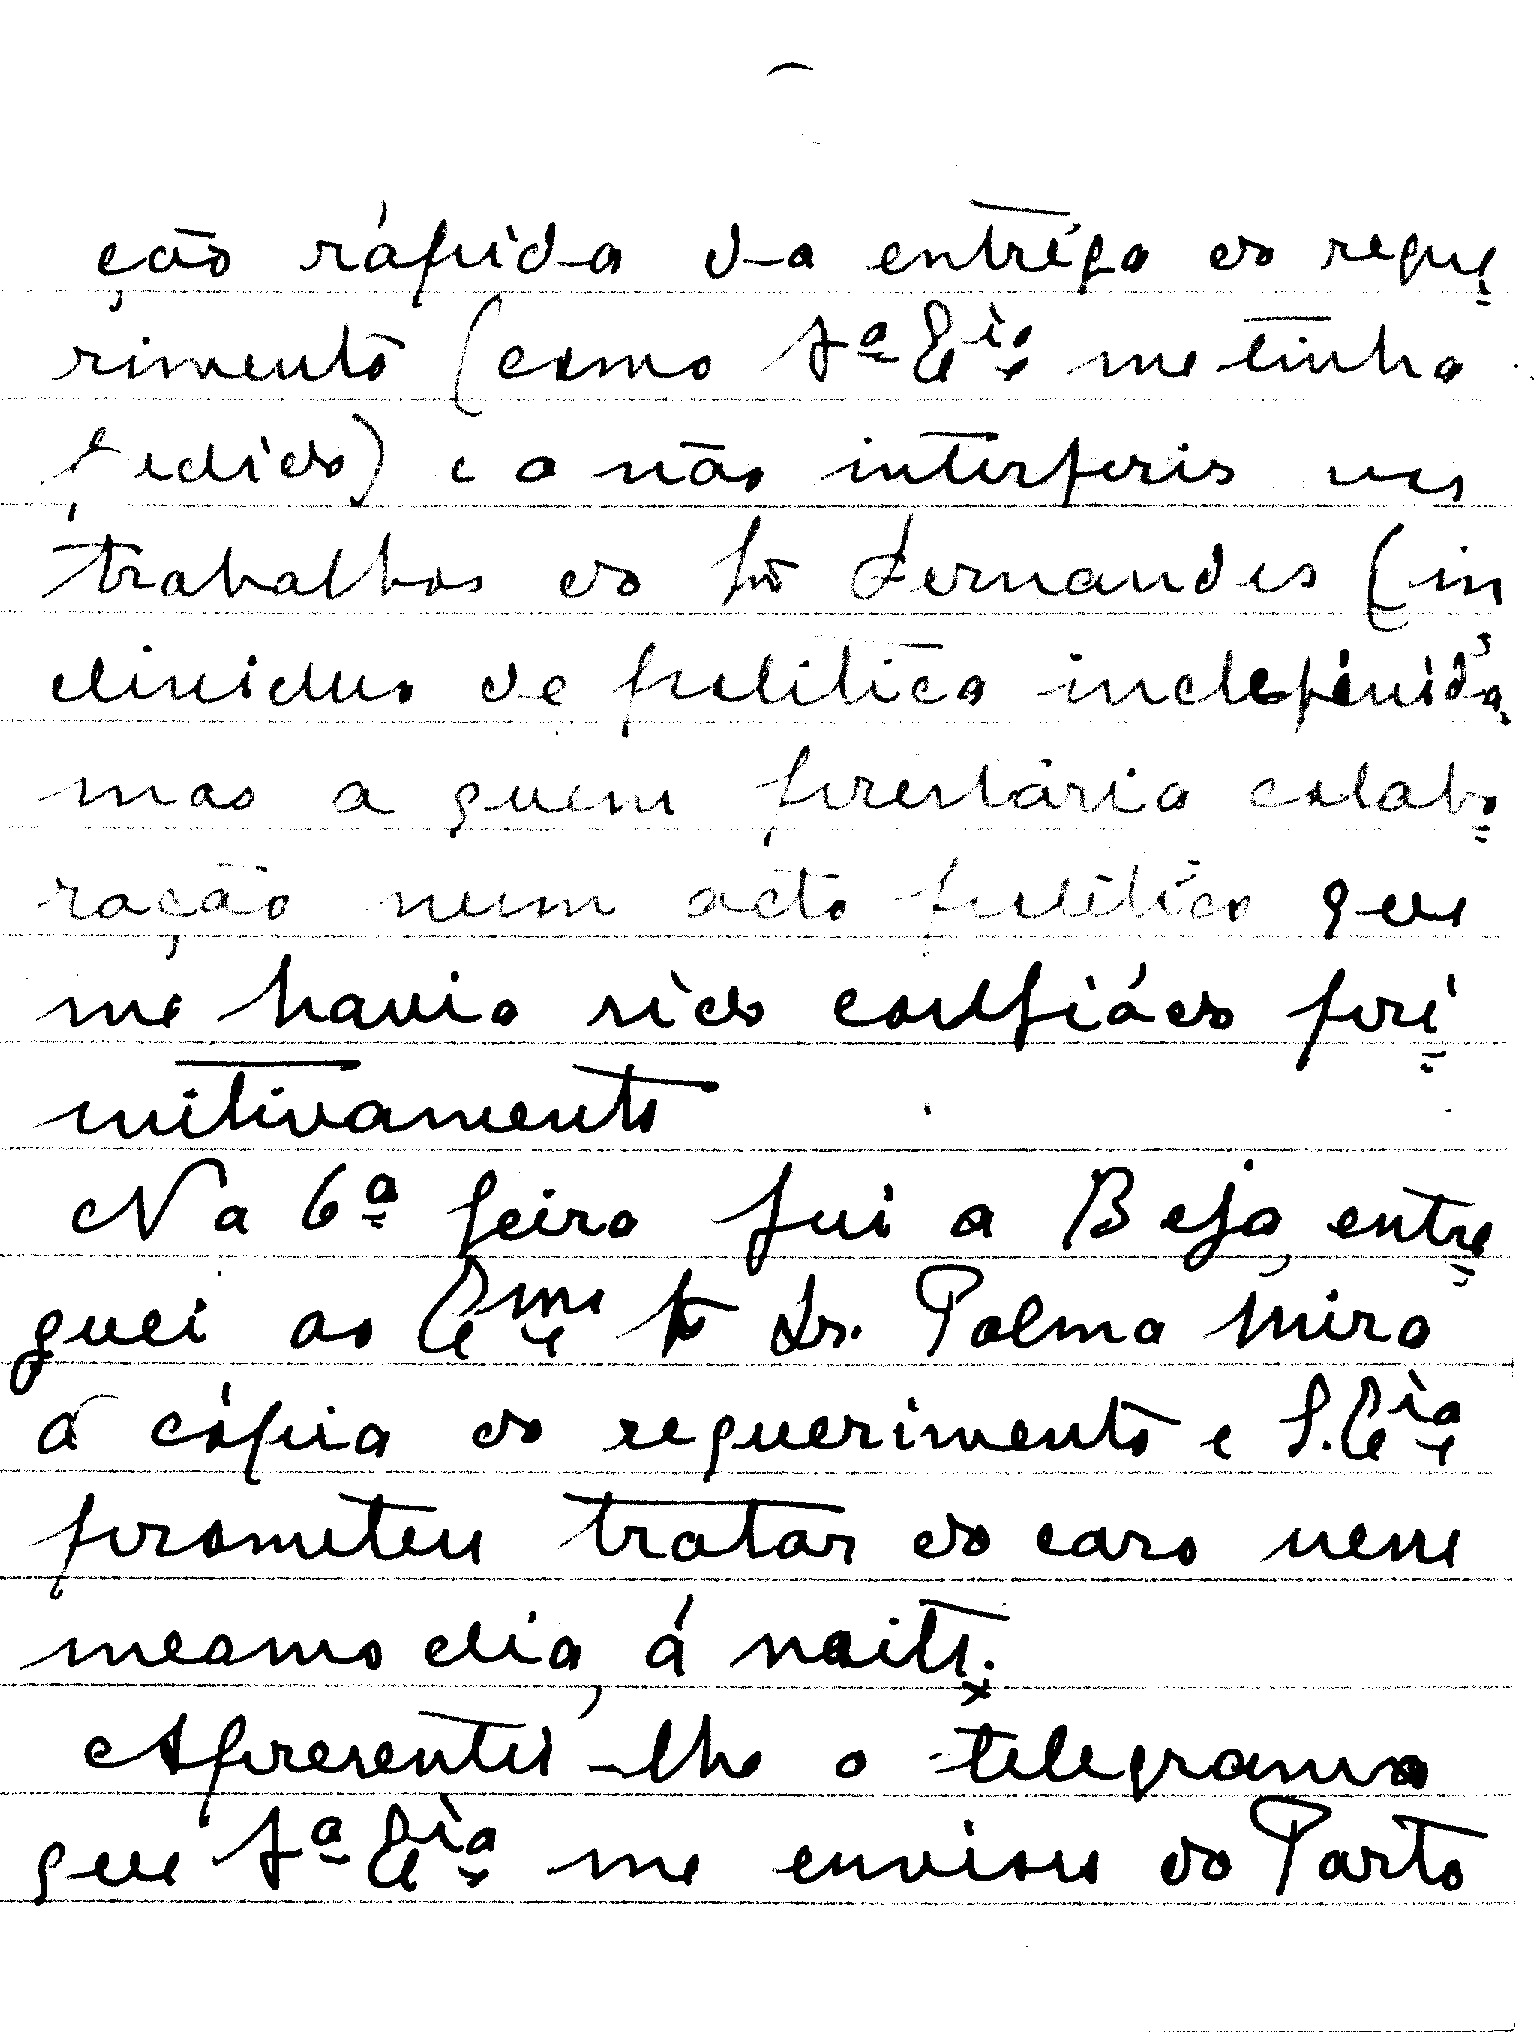 ção rápida da entrega do reque-
rimento (como V.ª Ex.ia me tinha
pedido) e a não interferir nos
trabalhos do Snr Fernandes (in
dividuo de politica indefinida,
mas a quem prestaria colabo-
ração num acto politico que
me havia sido confiádo pri-
mitivamente
Na 6ª feira fui a Beja, entre-
guei ao Ex.mo Snr Dr. Palma Mira
a cópia do requerimento e S. Ex.ia
prometeu tratar do caso nesse
mesmo dia, á noite.
Apresentei-lhe o telegrama
que V.ª Ex.ia me enviou do Porto